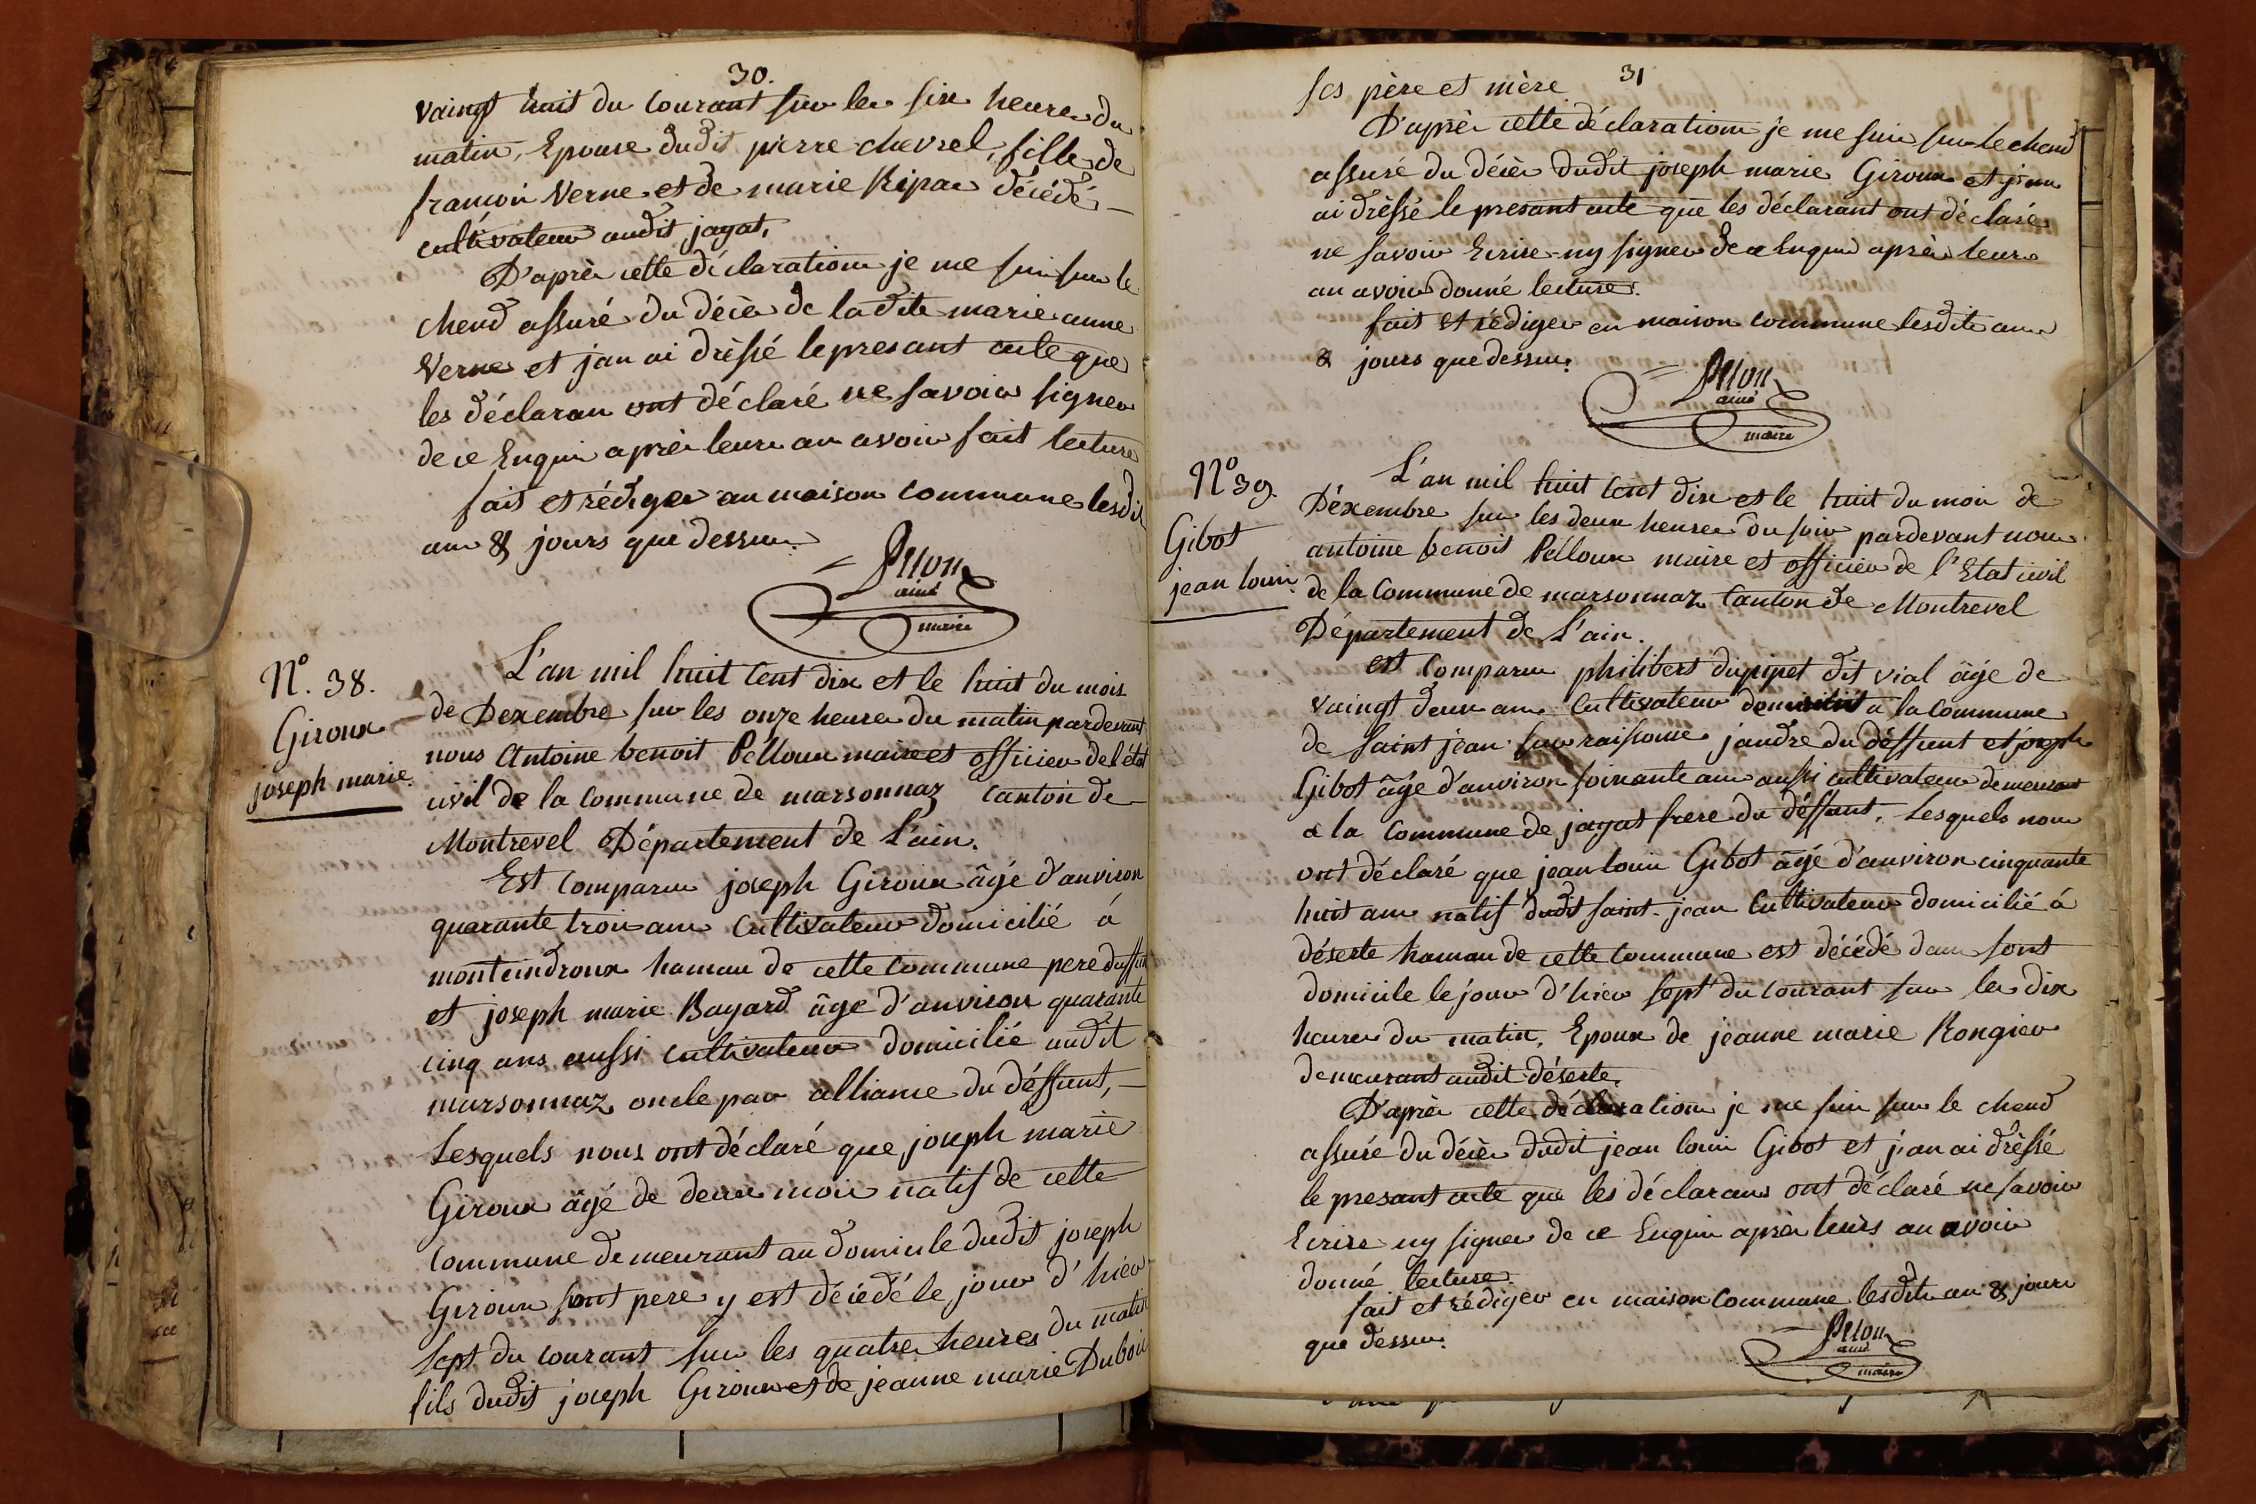 30.
vaingt huit du Courant sur les six heures du
matin, Epouse dudit pierre chevrel, fille de
françoi Verne et de marie Ripas décédé
cultivateur audit jayat,
D'après cette déclaration je me suis sur le
chend assuré du décès de la dite marie anne
Verne et j'an ai drèssé le presant acte que
les déclaran ont déclaré ne savoir signer
de ce Enquis après leurs an avoir fait lecture
fait et rédiger an maison commune lesdit
ans & jours que dessus.
ainé
maire
N°. 38.
Giroux
joseph marie.
L'an mil huit Cent dix et le huit du mois
de Dexembre sur les onze heures du matin pardevant
nous Antoine benoit Pelloux maire et officier de l'état
civil de la Commune de marsonnaz Canton de
Montrevel Département de L'ain.
Est Comparus joseph Giroux âgé d'anviron
quarante trois ans Cultivateur domicilié á
monteindroux hamau de cette Commune pere
et joseph marie Bayard âge d'anviron quarante
cinq ans aussi cultivateur domicilié audit
marsonnaz oncle par alliance du déffunt,
Lesquels nous ont déclaré que joseph marie
Giroux âgé de deux mois natif de cette
Commune demeurant au domicile dudit joseph
Giroux sont pere y est décédé le jour d'hier
sept du courant sur les quatre heures du matin
fils dudit joseph Giroux et de jeanne marie Dubois
31
ses père et mère
D'après cette déclaration je me suis sur le chend
assuré du décès dudit joseph marie Giroux et j'an
ai drèssé le presant acte que les déclarant ont déclaré
ne savoir Ecrire ny signer de ce Enquis après leurs
an avoir donné lecture.
fait et rédiger en maison commune lesdits ans
& jours que dessus.
ainé
maire
N° 39.
Gibot
jean louis.
L'an mil huit Cent dix et le huit du mois de
Déxembre sur les deux heures du soir pardevant nous
antoine benoit Pelloux maire et officier de l'Etat civil
de la Commune de marsonnaz Canton de Montrevel
Département de L'ain.
est Comparus philibert dupipet dit vial âgé de
vaingt deux ans Cultivateur domicilié a la Commune
de saint jean sur raissouse jandre du déffunt et joseph
Gibot âgé d'anviron soixante ans aussi cultivateur demeurant
a la Commune de jayat frere du déffunt. Lesquels nous
ont déclaré que jean louis Gibot âgé d'anviron cinquante
huit ans natif dudit saint-jean Cultivateur domicilié á
déserte hamau de cette Commune est décédé dans sont
domicile le jour d'hier sept du courant sur les dix
heures du matin, Epoux de jeanne marie Rongier
demeurant audit déserte.
D'après cette déclaration je me suis sur le chend
assuré du décès dudit jean louis Gibot et j'an ai drèssé
le presant acte que les déclarans ont déclaré ne savoir
Ecrire ny signer de ce Enquis après leurs an avoir
donné lecture.
fait et rédiger en maison Commune lesdits an & jours
que dessus.
ainé
maire